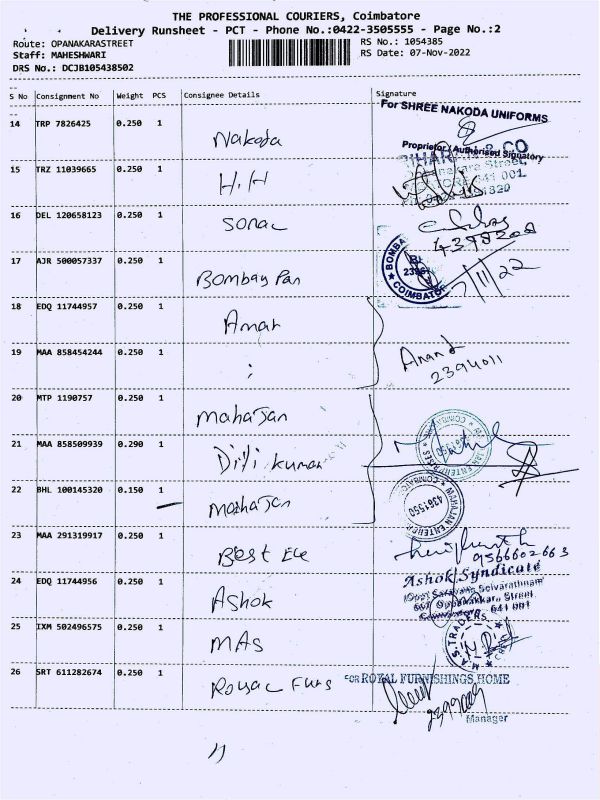 THE PROFESSIONAL COURIERS, Coimbatore
Delivery Runsheet - PCT - Phone No.:0422-3505555 - Page No.:2
Route: OPANAKARASTREET
RS No.: 1054385
Staff: MAHESHWARI
RS Date: 07-Nov-2022
DRS No.: DCJB105438502
S No Consignment No Weight PCS Consignee Details Signature
For SHREE NAKODA UNIFORMS
14 TRP 7826425 0.250 1
Nakoda
Proprietor / Authorised Signatory
& CO
15 TRZ 11039665 0.250 1
H.H
641 001
16 DEL 120658123 0.250 1
Sonal
17 AJR 500057337 0.250 1
Bombay Pan
BOMBA
COIMBATO
7/11/22
18 EDQ 11744957 0.250 1
Amar
19 MAA 858454244 0.250 1
:
Anand
2394011
20 MTP 1190757 0.250 1
Mahajan
21 MAA 858509939 0.290 1
Dili Kumar
22 BHL 100145320 0.150 1
Mahajan
4361550
23 MAA 291319917 0.250 1
Best Ele
9566602663
24 EDQ 11744956 0.250 1
Ashok
Ashok Syndicate
25 IXM 502496575 0.250 1
MAS
M.A.S. TRADERS
26 SRT 611282674 0.250 1
Royal Furs
FOR ROYAL FURNISHINGS HOME
Manager